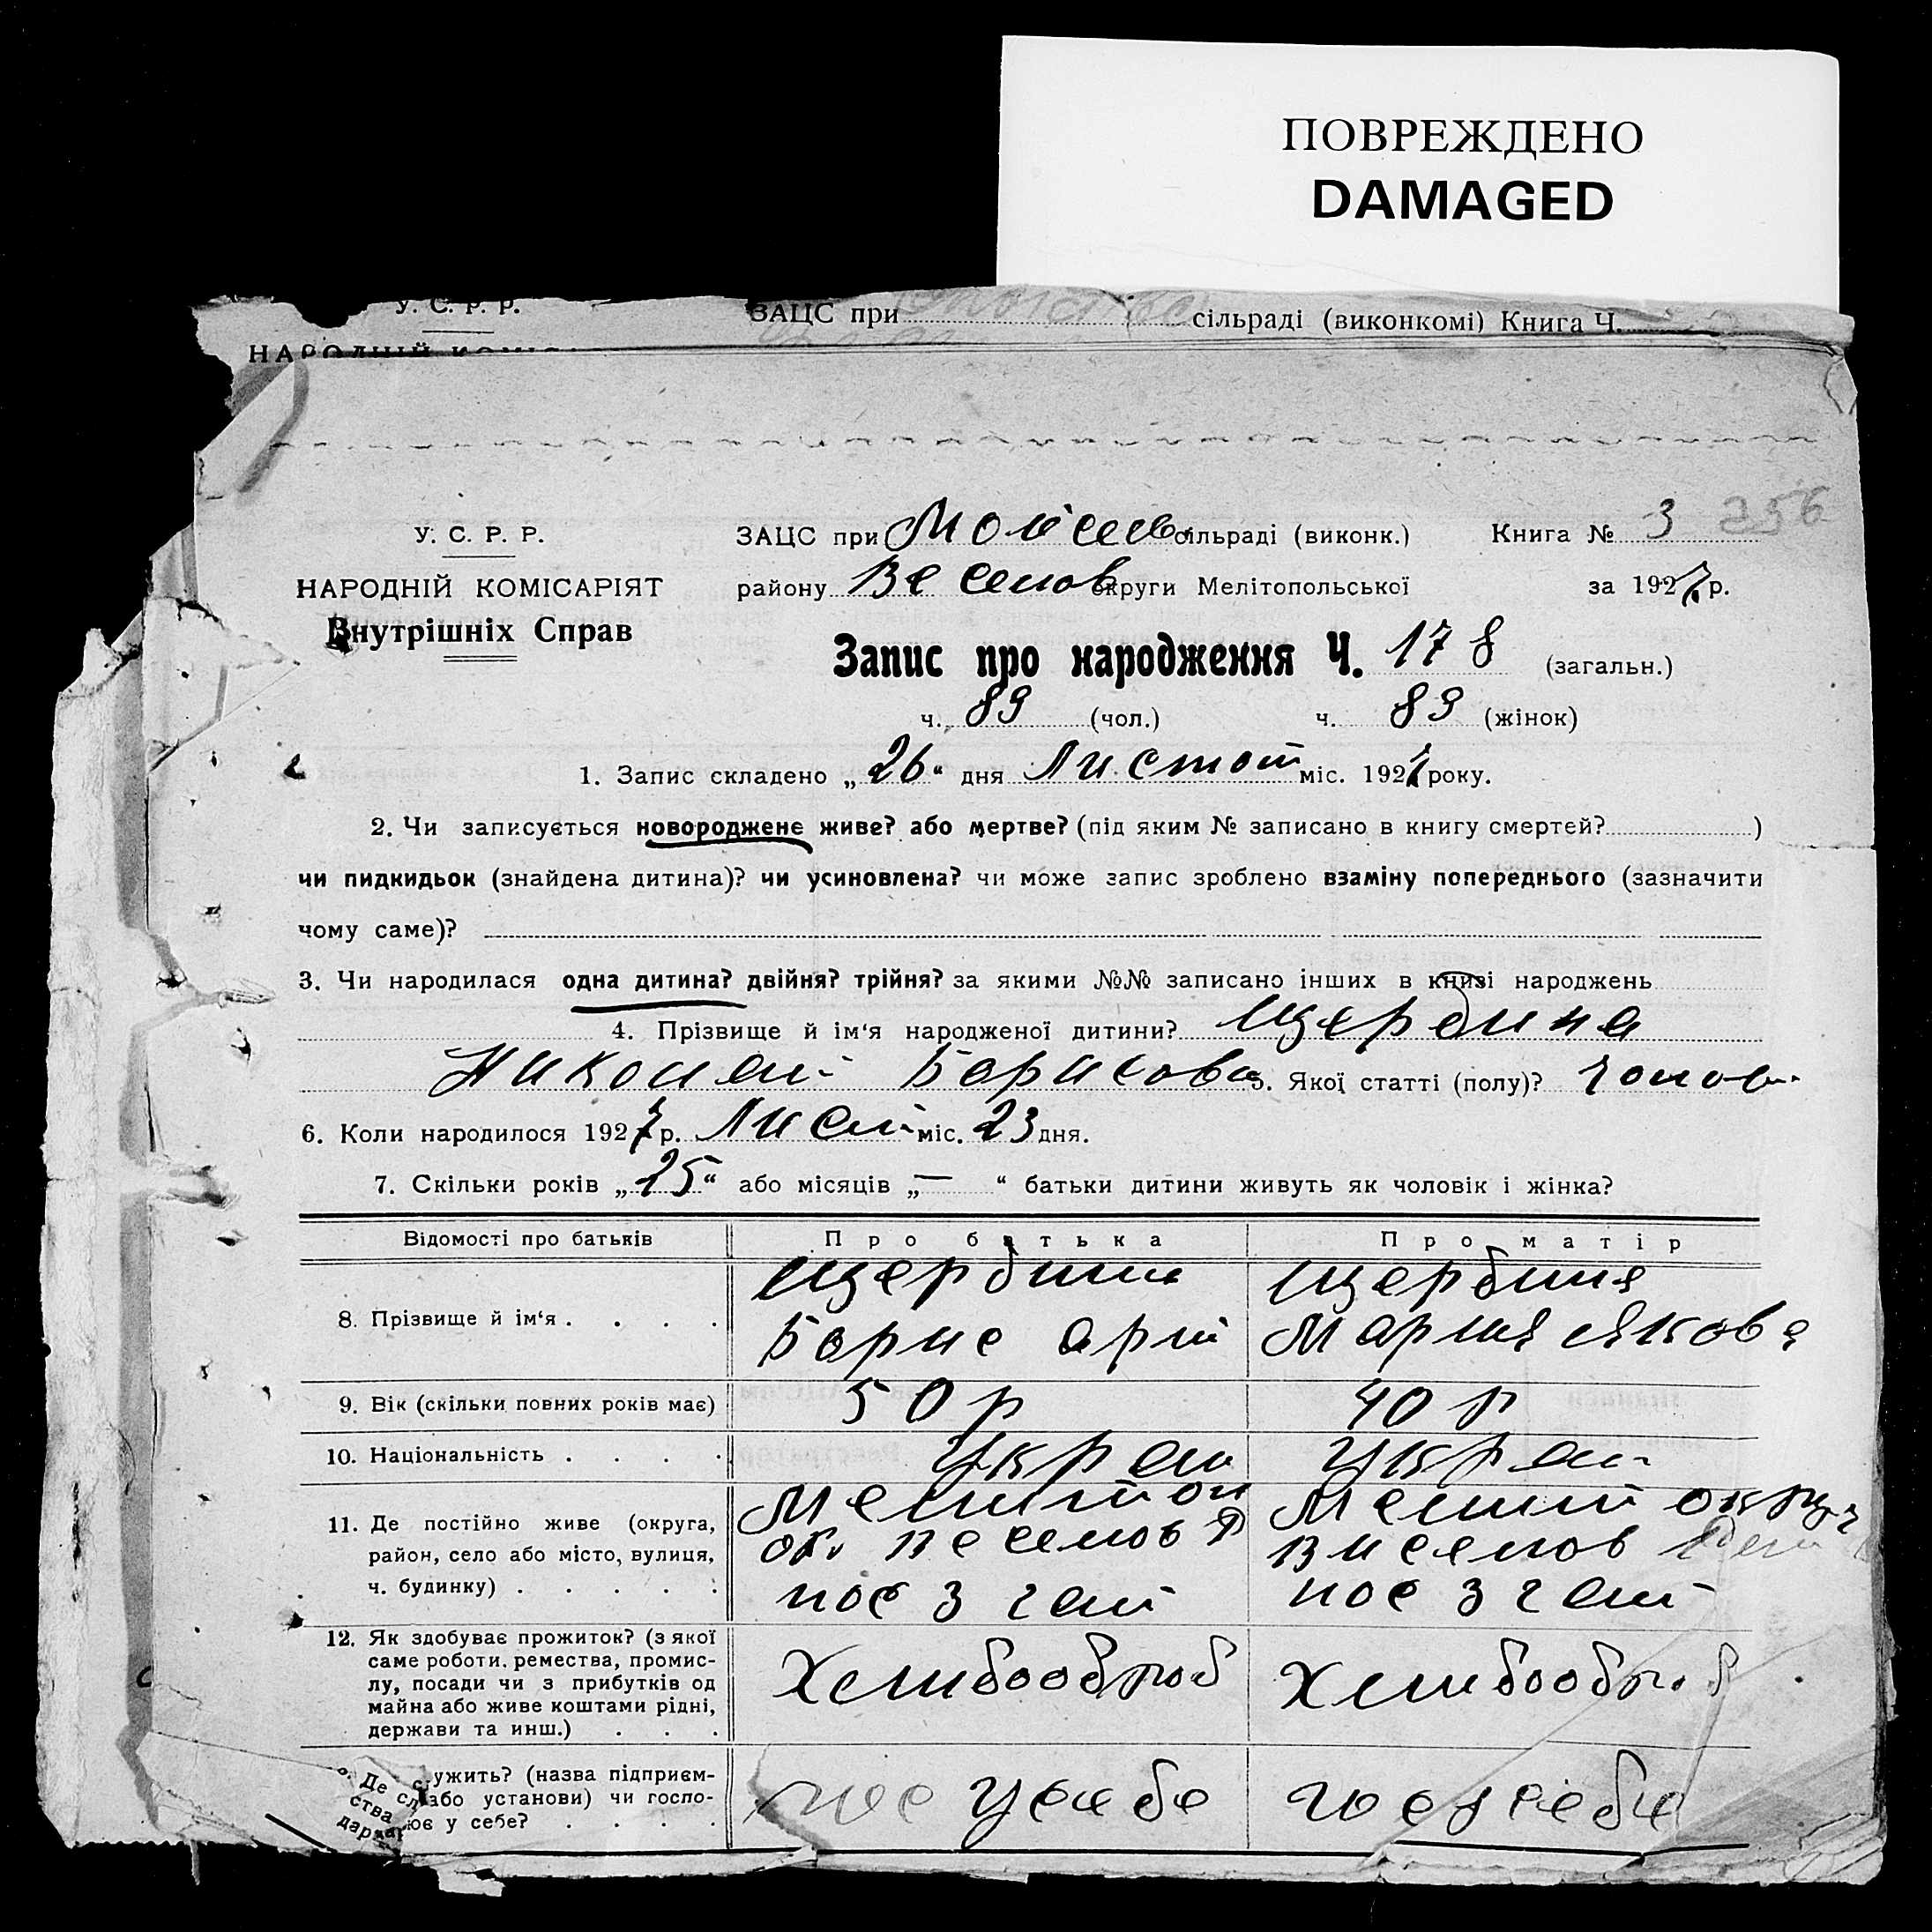 ПОВРЕЖДЕНО
DAMAGED
У. С. Р. Р.
ЗАЦС при сільраді (виконкомі) Книга Ч.
НАРОДНІЙ
У. С. Р. Р. ЗАЦС при сільраді (виконк.) Книга № 3 256
НАРОДНІЙ КОМІСАРІЯТ району Веселов округи Мелітопольської за 1927 р.
Внутрішніх Справ
Запис про народження Ч. 178 (загальн.)
ч. 89 (чол.) ч. 89 (жінок)
1. Запис складено „26“ дня Листоп міс. 1927 року.
2. Чи записується новороджене живе? або мертве? (під яким № записано в книгу смертей? )
чи пидкидьок (знайдена дитина)? чи усиновлена? чи може запис зроблено взаміну попереднього (зазначити
чому саме)?
3. Чи народилася одна дитина? двійня? трійня? за якими №№ записано інших в книзі народжень
4. Прізвище й ім‘я народженої дитини? Щербина
Николай Борисов 5. Якої статті (полу)? чолов
6. Коли народилося 1927 р. Лист міс. 23 дня.
7. Скільки років „25“ або місяців „—“ батьки дитини живуть як чоловік і жінка?
Відомості про батьків Про батька Про матір
8. Прізвище й ім‘я . . . . Щербина Щербина
Борис Мария Яковл
9. Вік (скільки повних років має) 50 р 40 р
10. Національність . . . . Украй Украй
11. Де постійно живе (округа, район, село або місто, вулиця, ч. будинку) . . . . Мелитоп Мелит округ
ок. Веселов Р Виселов
пос 3 гай пос 3 гай
12. Як здобуває прожиток? (з якої
саме роботи, ремества, промис-
лу, посади чи з прибутків од
майна або живе коштами рідні,
держави та инш.) . . . Хлибооброб Хлибооброб
Де служить? (назва підприєм-
ства або установи) чи госпо-
дарює у себе? . . . . гос у себе гос у себе